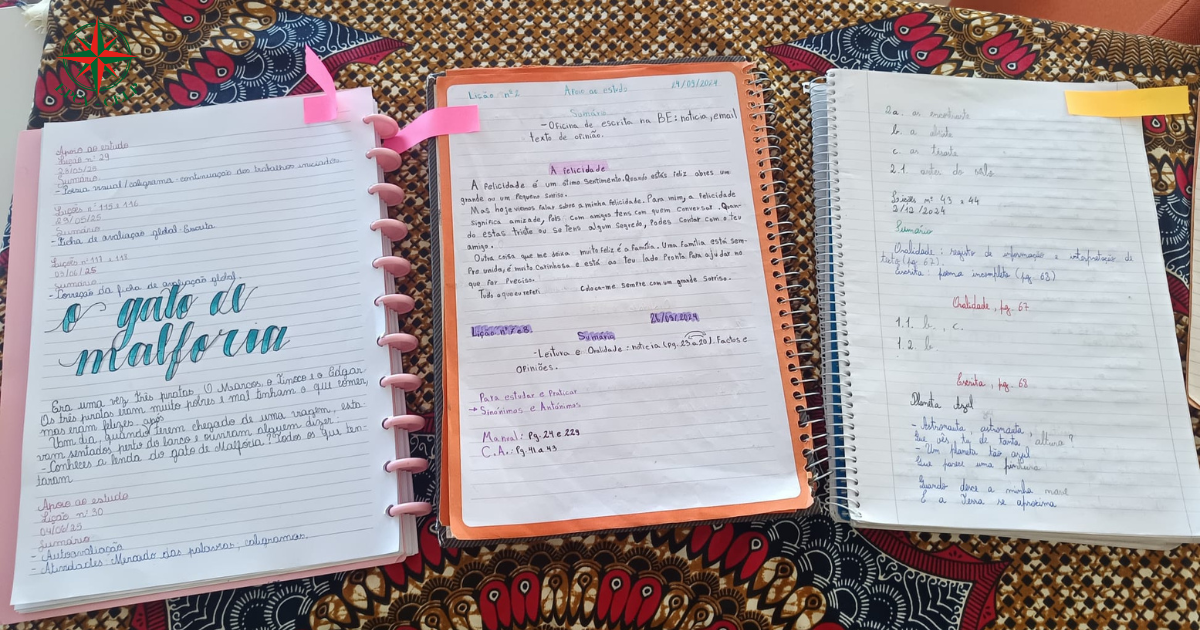 Apoio ao estudo
Lição nº 29
28/05/25
Sumário
- Poesia visual/caligrama: continuação dos trabalhos iniciados
Lições nº 115 e 116
29/05/25
Sumário
- Ficha de avaliação global: Escrita
Lições nº 117 e 118
03/06/25
Sumário
- Correção da ficha de avaliação global.
o gato de
malforia
Era uma vez três piratas, O Marcos, o Tinoco e o Edgar.
Os três piratas eram muito pobres e mal tinham o que comer,
mas eram felizes.
Um dia, após terem chegado de uma viagem, esta
vam sentados perto do barco e ouviram alguém dizer:
- Conheces a lenda do gato de Malforia? Todos os que ten-
taram
Apoio ao estudo
Lição nº 30
04/06/25
Sumário
- Autoavaliação
- Atividades: Mercado das palavras, caligramas.
Lição nº 2 Apoio ao estudo 19/09/2024
Sumário
- Oficina de escrita na BE: notícia, email
texto de opinião.
A felicidade
A felicidade é um ótimo sentimento. Quando estás feliz abres um
grande ou um pequeno sorriso.
Mas hoje viemos falar sobre a minha felicidade. Para mim, a felicidade
significa amizade, pois com amigos tens com quem conversar. Quan-
do estas triste ou se tens algum segredo, podes contar com o teu
amigo.
Outra coisa que me deixa muito feliz é a família. Uma família está sem-
pre unida, é muito carinhosa e está ao teu lado pronta para ajudar no
que for preciso.
Tudo o que eu referi coloca-me sempre com um grande sorriso.
Lição nº 7 e 8 Sumário 26/09/2024
- Leitura e Oralidade: notícia (pg. 25 a 28). Factos e
opiniões.
Para estudar e Praticar
→ Sinónimos e Antónimos
Manual: Pg. 24 e 229
C.A.: Pg. 41 a 43
2.a. ao montante
b. a
c. ao
2.1. antes do
Lições nº 43 e 44
2/12/2024
Sumário
Oralidade: registo de informação e interpretação de
texto (pg. 67)
Escrita: poema incompleto (pg. 68)
Oralidade, pg. 67
1.1. b., c.
1.2. b
Escrita, pg. 68
Planeta Azul
- Astronauta, astronauta,
Que vês tu de tanta altura?
- Um planeta tão azul
Que parece uma pintura
Quando desce a minha nave
E a Terra se aproxima